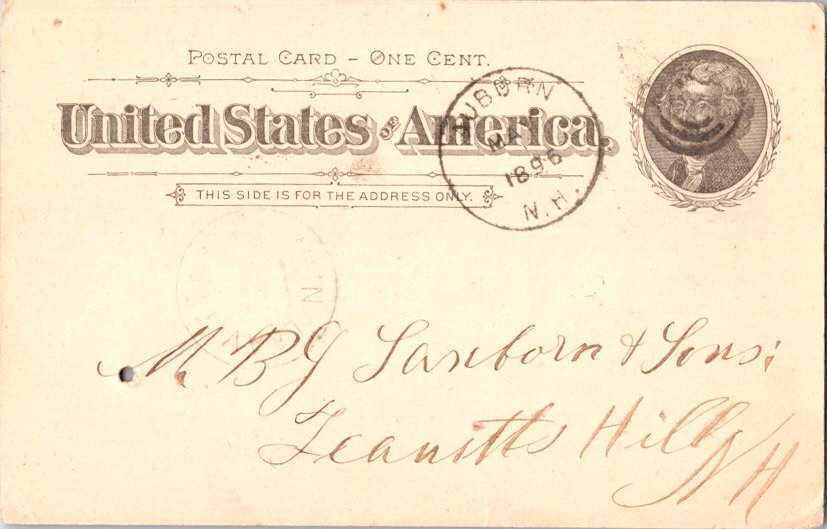 POSTAL CARD - ONE CENT.
United States of America.
THIS SIDE IS FOR THE ADDRESS ONLY.
AUBURN
MA
1896
N.H.
M. B G Sanborn & Sons:
Leavitts Hill
N H